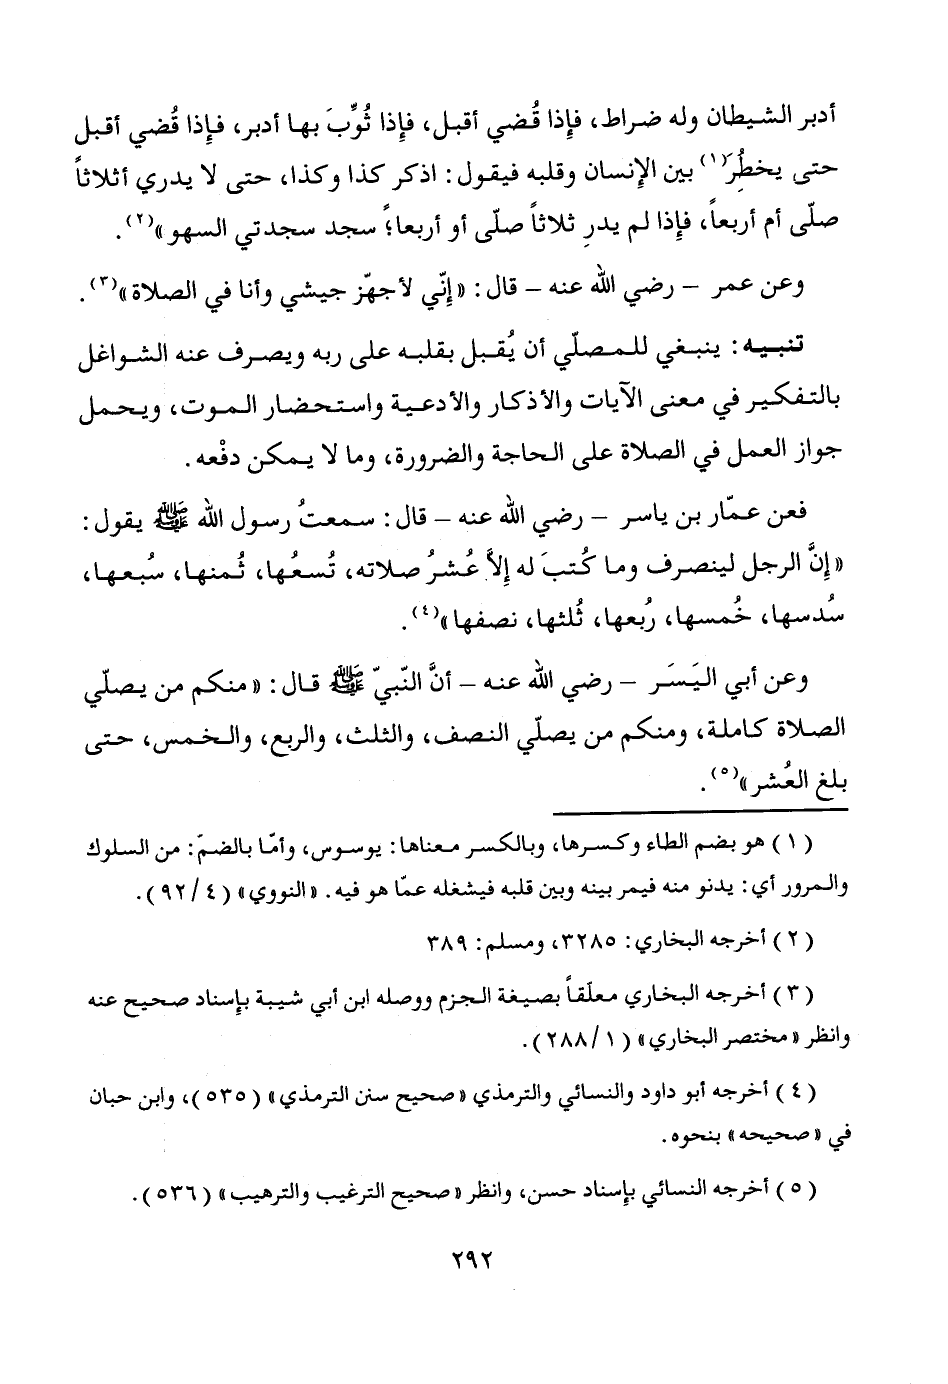 أدبر الشيطان وله ضراط، فإذا قُضي أقبل، فإذا ثُوِّبَ بها أدبر، فإذا قُضي أقبل
حتى يخطُِرَ(١) بين الإنسان وقلبه فيقول: اذكر كذا وكذا، حتى لا يدري أثلاثاً
صلّى أم أربعاً، فإذا لم يدرِ ثلاثاً صلّى أو أربعاً؛ سجد سجدتي السهو»(٢).
وعن عمر – رضي الله عنه – قال: «إنّي لأجهّز جيشي وأنا في الصلاة»(٣).
تنبيه: ينبغي للمصلّي أن يُقبل بقلبه على ربه ويصرف عنه الشواغل
بالتفكير في معنى الآيات والأذكار والأدعية واستحضار الموت، ويحمل
جواز العمل في الصلاة على الحاجة والضرورة، وما لا يمكن دفْعه.
فعن عمّار بن ياسر – رضي الله عنه – قال: سمعتُ رسول الله ﷺ يقول:
«إنَّ الرجل لينصرف وما كُتبَ له إلاَّ عُشرُ صلاته، تُسعُها، ثُمنها، سُبعها،
سُدسها، خُمسها، رُبعها، ثُلثها، نصفها»(٤).
وعن أبي اليَسَر – رضي الله عنه – أنَّ النّبيّ ﷺ قال: «منكم من يصلّي
الصلاة كاملة، ومنكم من يصلّي النصف، والثلث، والربع، والخمس، حتى
بلغ العُشر»(٥).
(١) هو بضم الطاء وكسرها، وبالكسر معناها: يوسوس، وأمّا بالضمّ: من السلوك
والمرور أي: يدنو منه فيمر بينه وبين قلبه فيشغله عمّا هو فيه. «النووي» (٤/٩٢).
(٢) أخرجه البخاري: ٣٢٨٥، ومسلم: ٣٨٩
(٣) أخرجه البخاري معلّقاً بصيغة الجزم ووصله ابن أبي شيبة بإسناد صحيح عنه
وانظر «مختصر البخاري» (١/٢٨٨).
(٤) أخرجه أبو داود والنسائي والترمذي «صحيح سنن الترمذي» (٥٣٥)، وابن حبان
في «صحيحه» بنحوه.
(٥) أخرجه النسائي بإسناد حسن، وانظر «صحيح الترغيب والترهيب» (٥٣٦).
٢٩٢